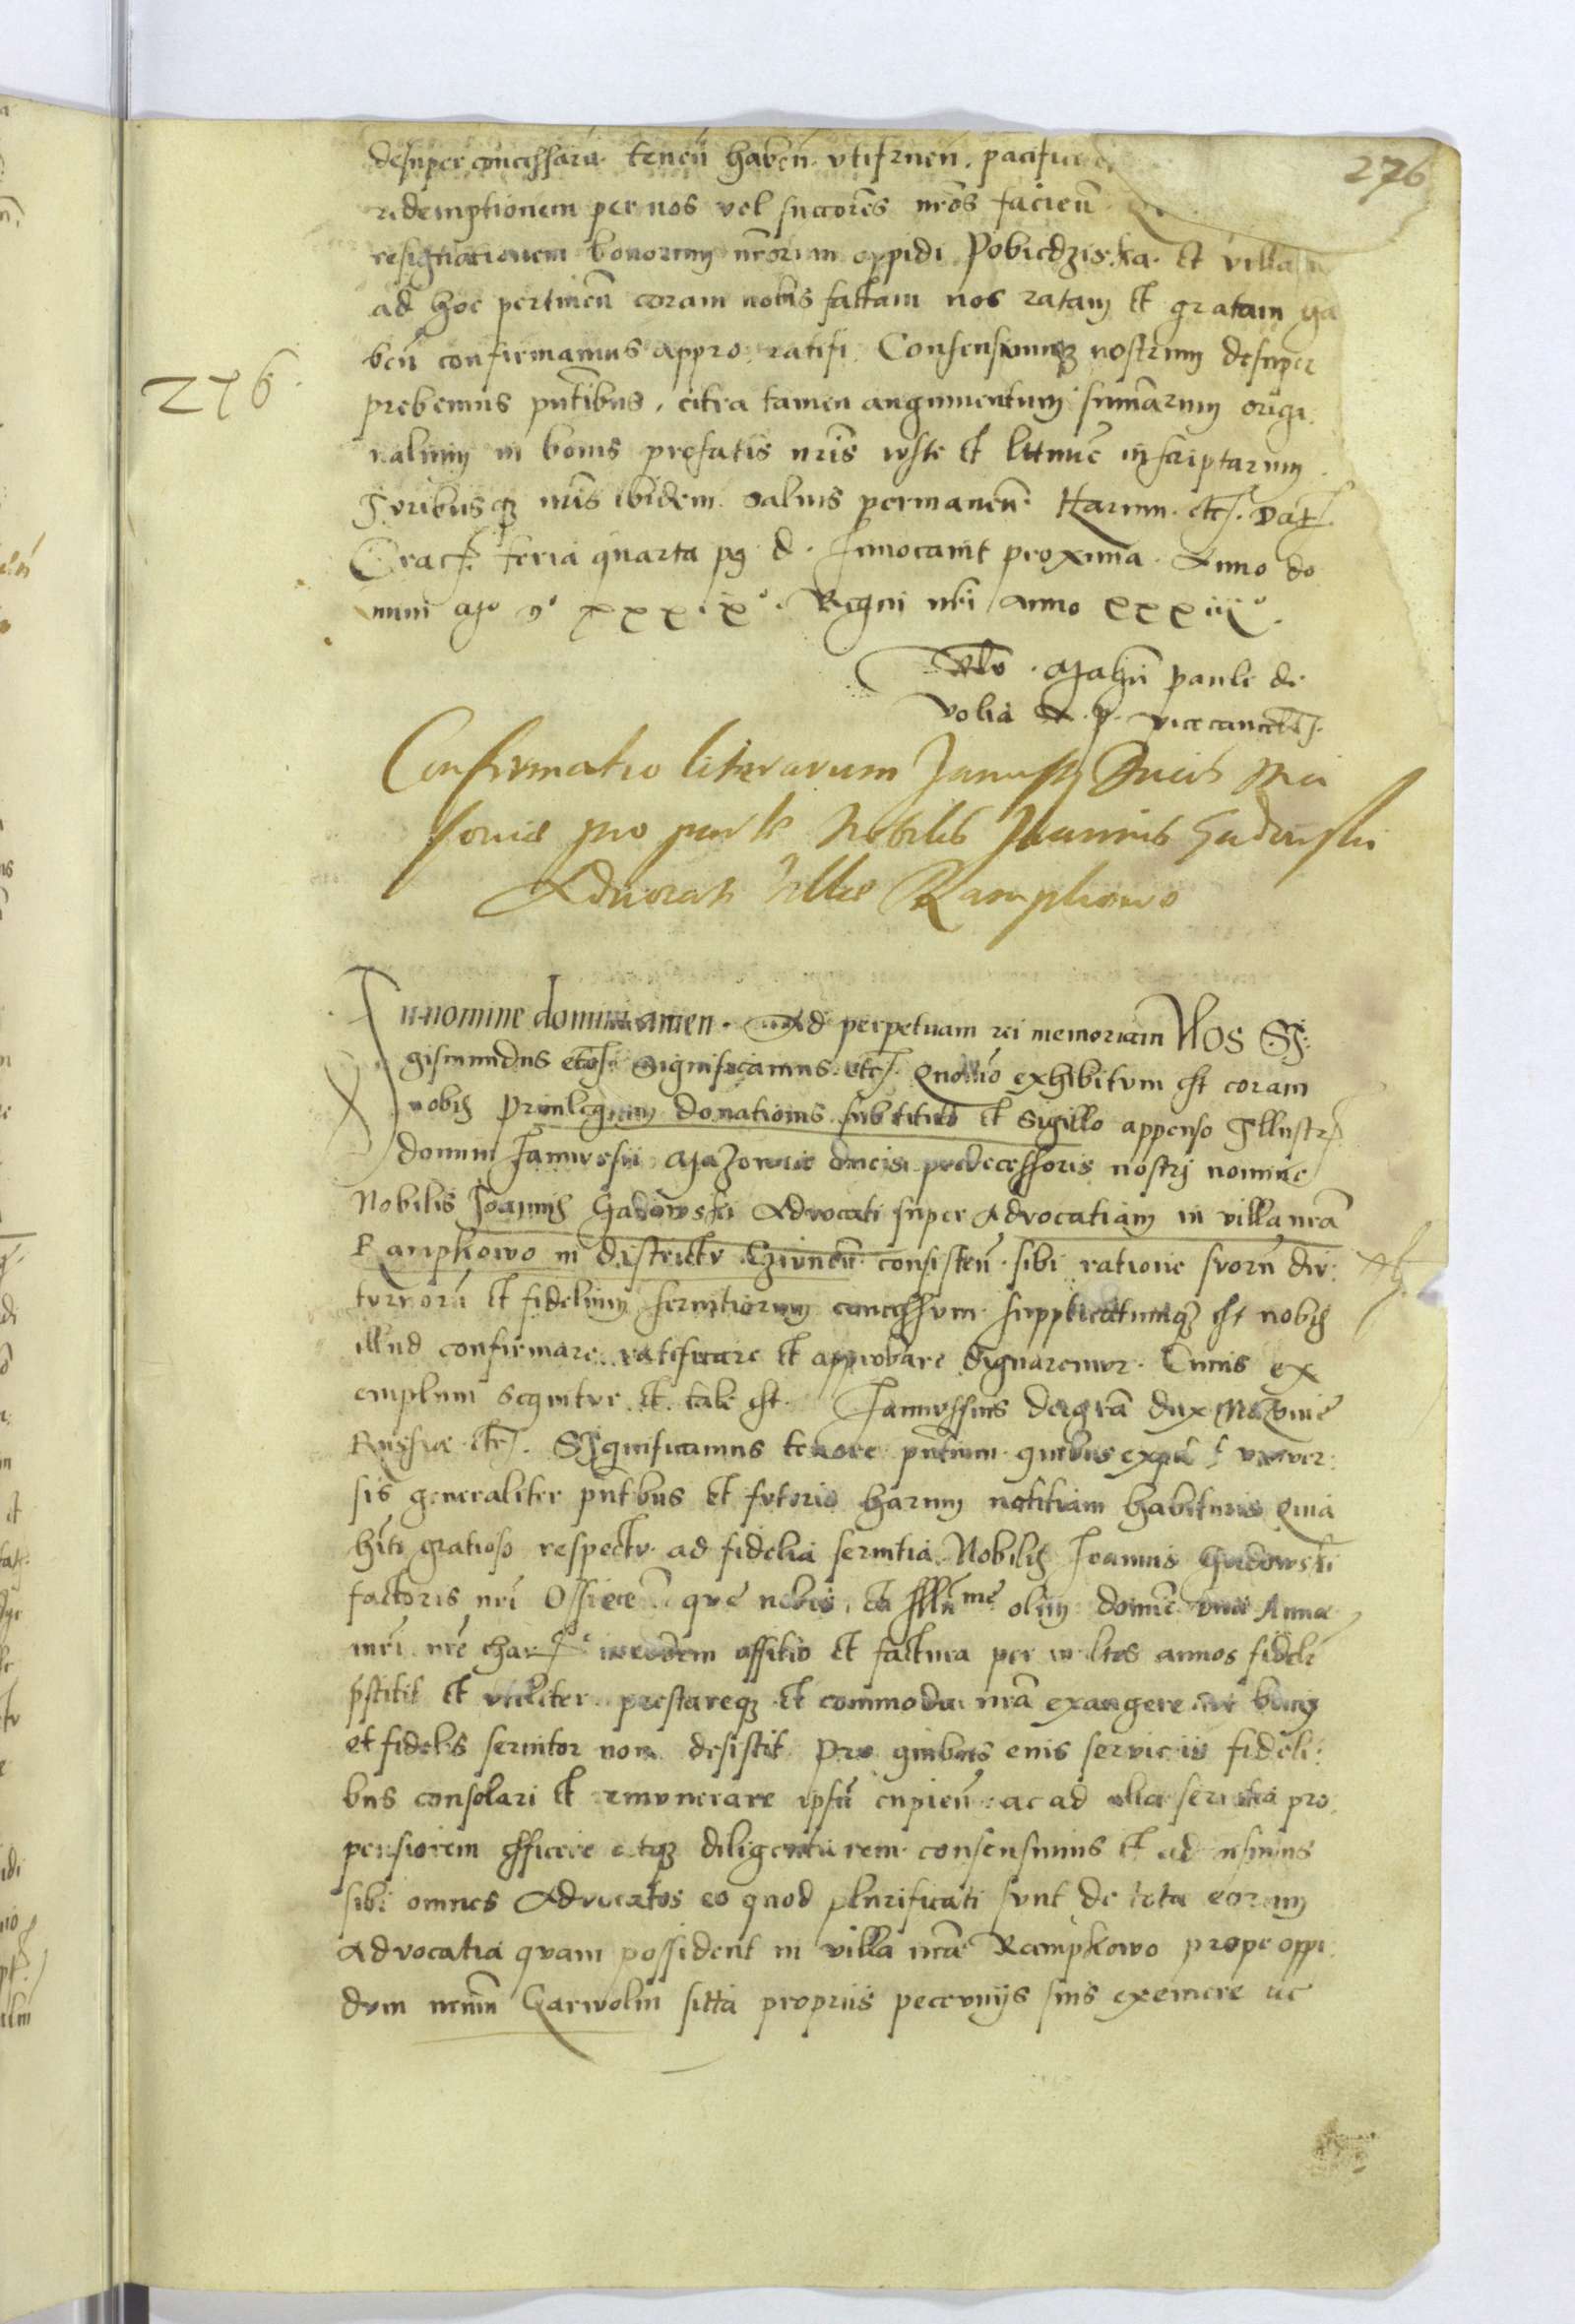 276
desuper concessaru. teneñ habeñ. utifrueñ. pacifice
redemptionem per nos vel succores nros facieñ
resignationem bonorum nrorum oppidi Pobiedziska. et villa
ad hoc pertineñ coram nobis factam nos ratam et gratam ha
beñ confirmamus appro. ratifi. Consensumq3 nostrum desuper
276.
prebemus pntibus. citra tamen augumentum sumarum origi
nalium in bonis prefatis nris iuste et littime inscriptarum
Juribusq3 nris ibidem salvis permaneñ. Harum. etc. Dat.
Crac. feria quarta p9 d. Invocavit proxima. Anno do
mini Mo do xxxixo. Regni nri Anno xxxiijo.
Mahci Paule de
Volia R. P. vicecancell.
Confirmatio literarum Janussii Ducis Ma
sovie pro parte Nobilis Joannis Gadowski
Advocati Ville Rampkowo
In nomine domini amen. Ad perpetuam rei memoriam Nos Si
gismundus etc. Significamus. etc. Quomo exhibitum est coram
nobis Privilegium donationis sub titulo et Sigillo appenso Illustr
domini Janussii Mazovie ducis predecessoris nostri nomine
Nobilis Joannis Gadowski Advocati super Advocatiam in villa nra
Rampkowo in districtu consisteñ. sibi ratione suoru diu
turnoru et fidelium servitiorum concessum. supplicatumq3 est nobis
illud confirmare. ratificare et approbare dignaremur. Cuius ex
emplum sequitur et tale est. Janussius dei gra dux Mazovie
Russie etc. Significamus tenore pntium. quibus expedit univer
sis generaliter pntibus et futuris harum notitiam habituris Quia
hiti gratioso respectu. ad fidelia servitia Nobilis Joannis Gadowski
factoris nri que nobis. et Illme olim domine Anne
mri nre char in eodem offitio et factura per multos annos fideli
pstitit et utiliter. prestareq3 et commoda nra exaugere uti bonus
et fidelis servitor non desistit Pro quibus eius serviciis fideli
bus consolari et remunerare ipsu cupieñ: ac ad alia servitia pro
pensiorem efficere atq3 diligentiorem. consensimus et admisimus
sibi omnes Advocatos eo quod plurificati sunt de tota eorum
Advocatia quam possident in villa nra Rampkowo prope oppi
dum nrum Garwolin sitta propriis pecuniis suis exemere ac